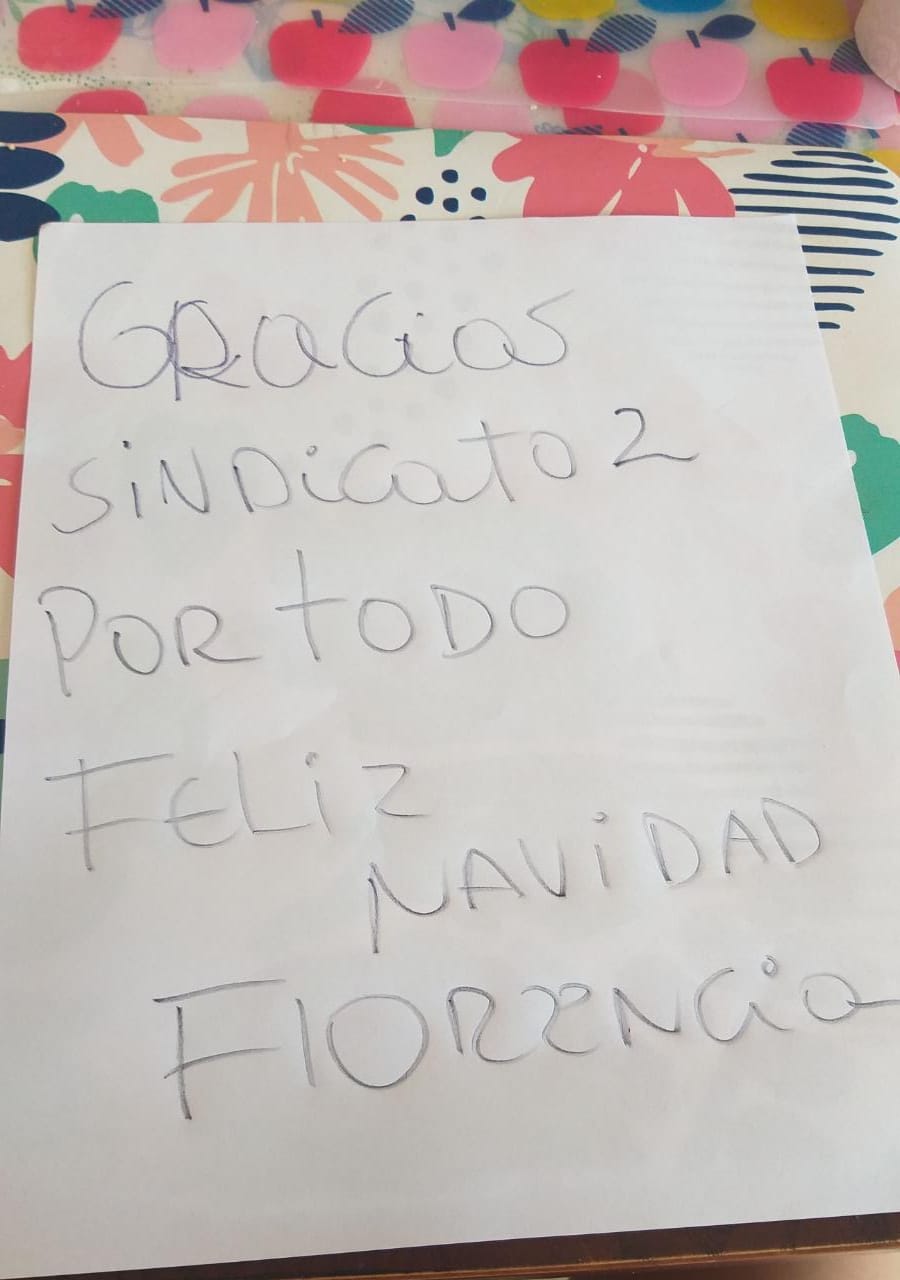 GRacias
SiNDicato 2
POR tODO
FELiZ
NAViDAD
FlORENcia